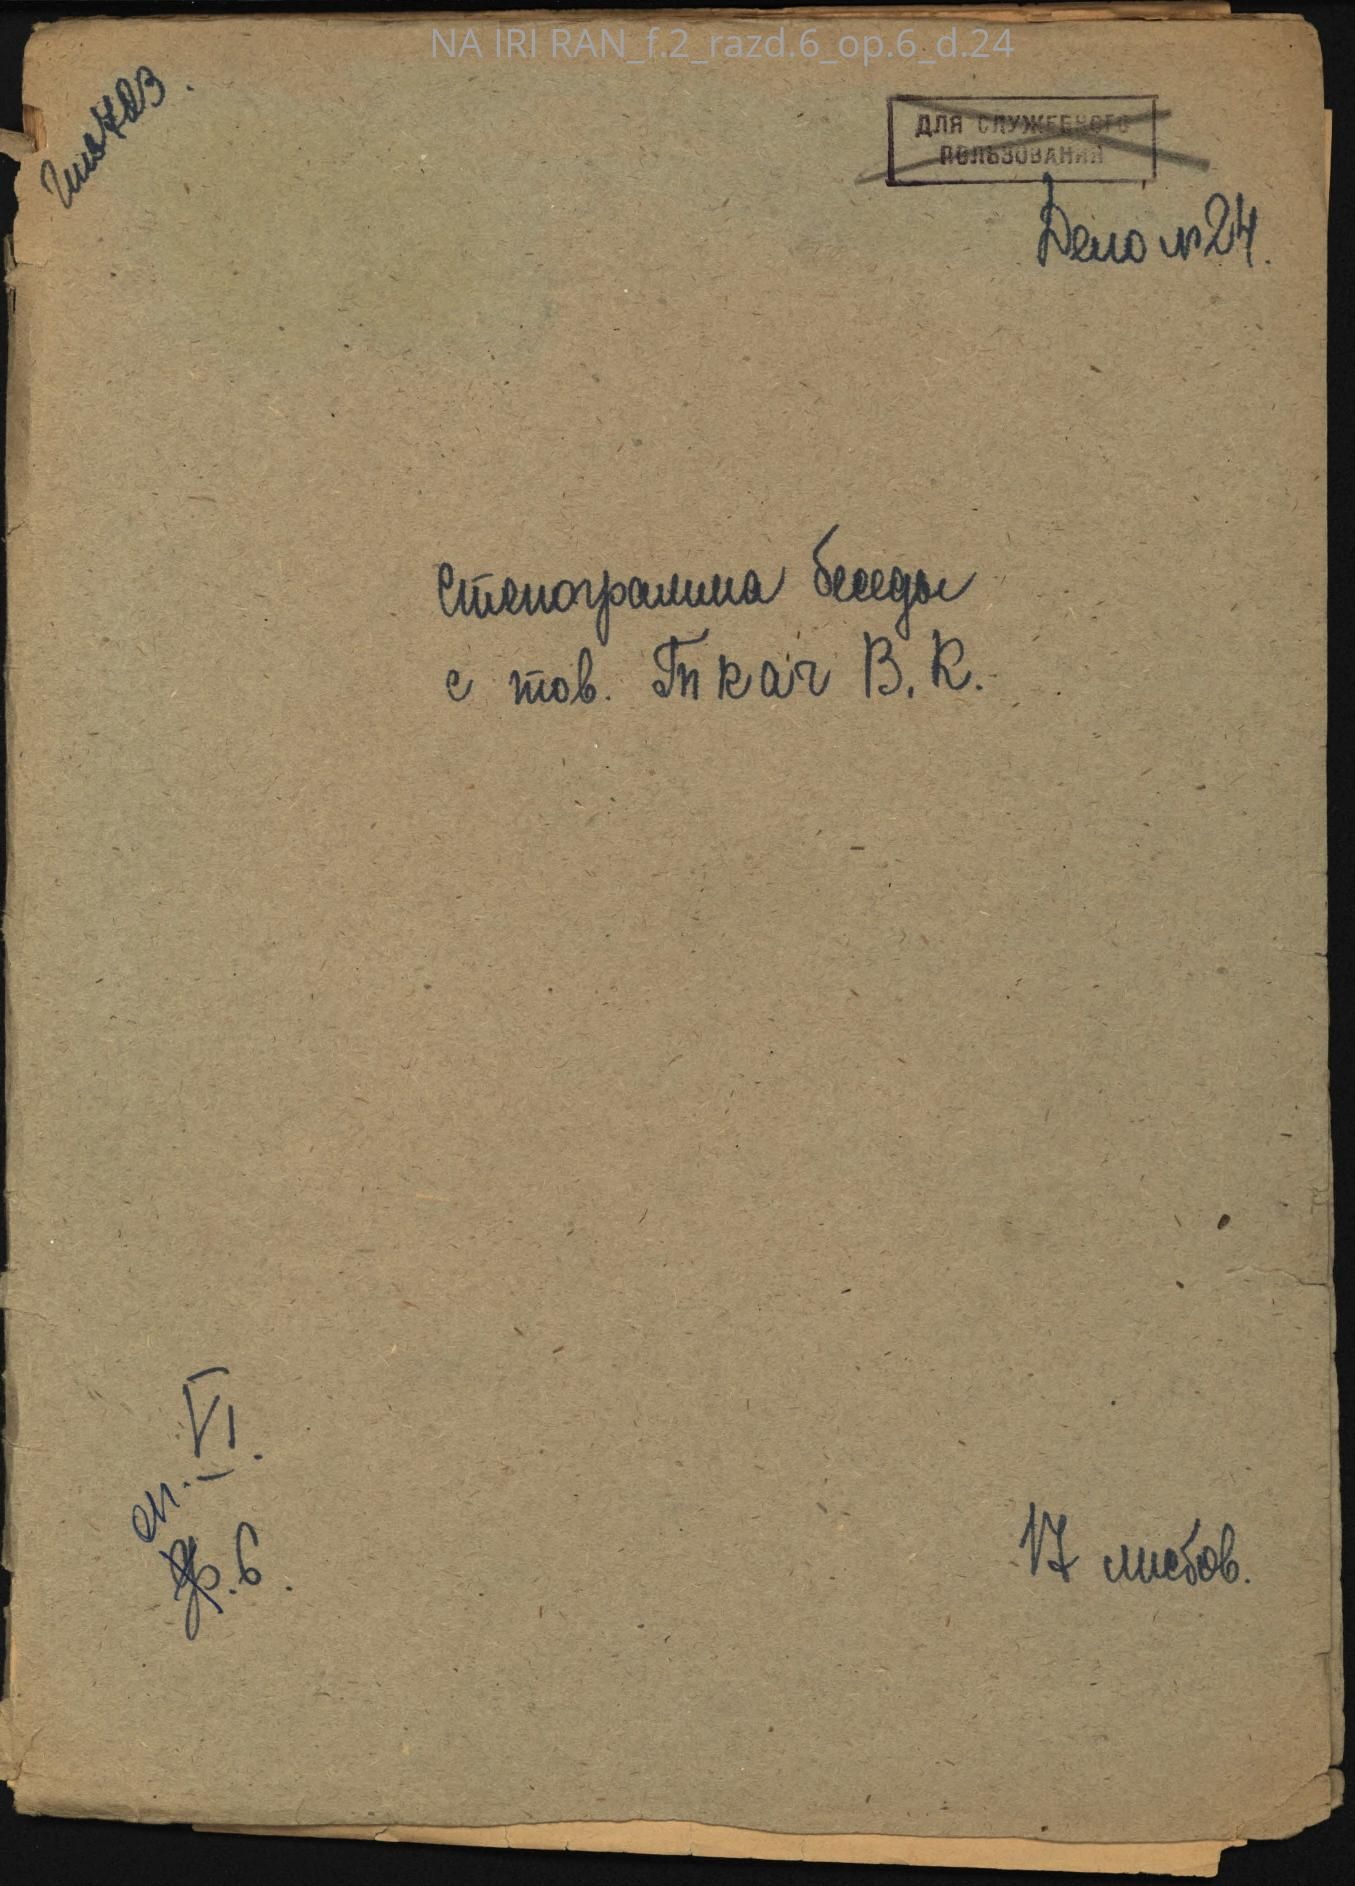 NA IRI RAN_f.2_razd.6_op.6_d.24
ДЛЯ СЛУЖЕБНОГО
ПОЛЬЗОВАНИЯ
Дело №24.
Стенограмма беседы
с тов. Ткач В.К.
оп. VI.
Ф.6.
17 листов.